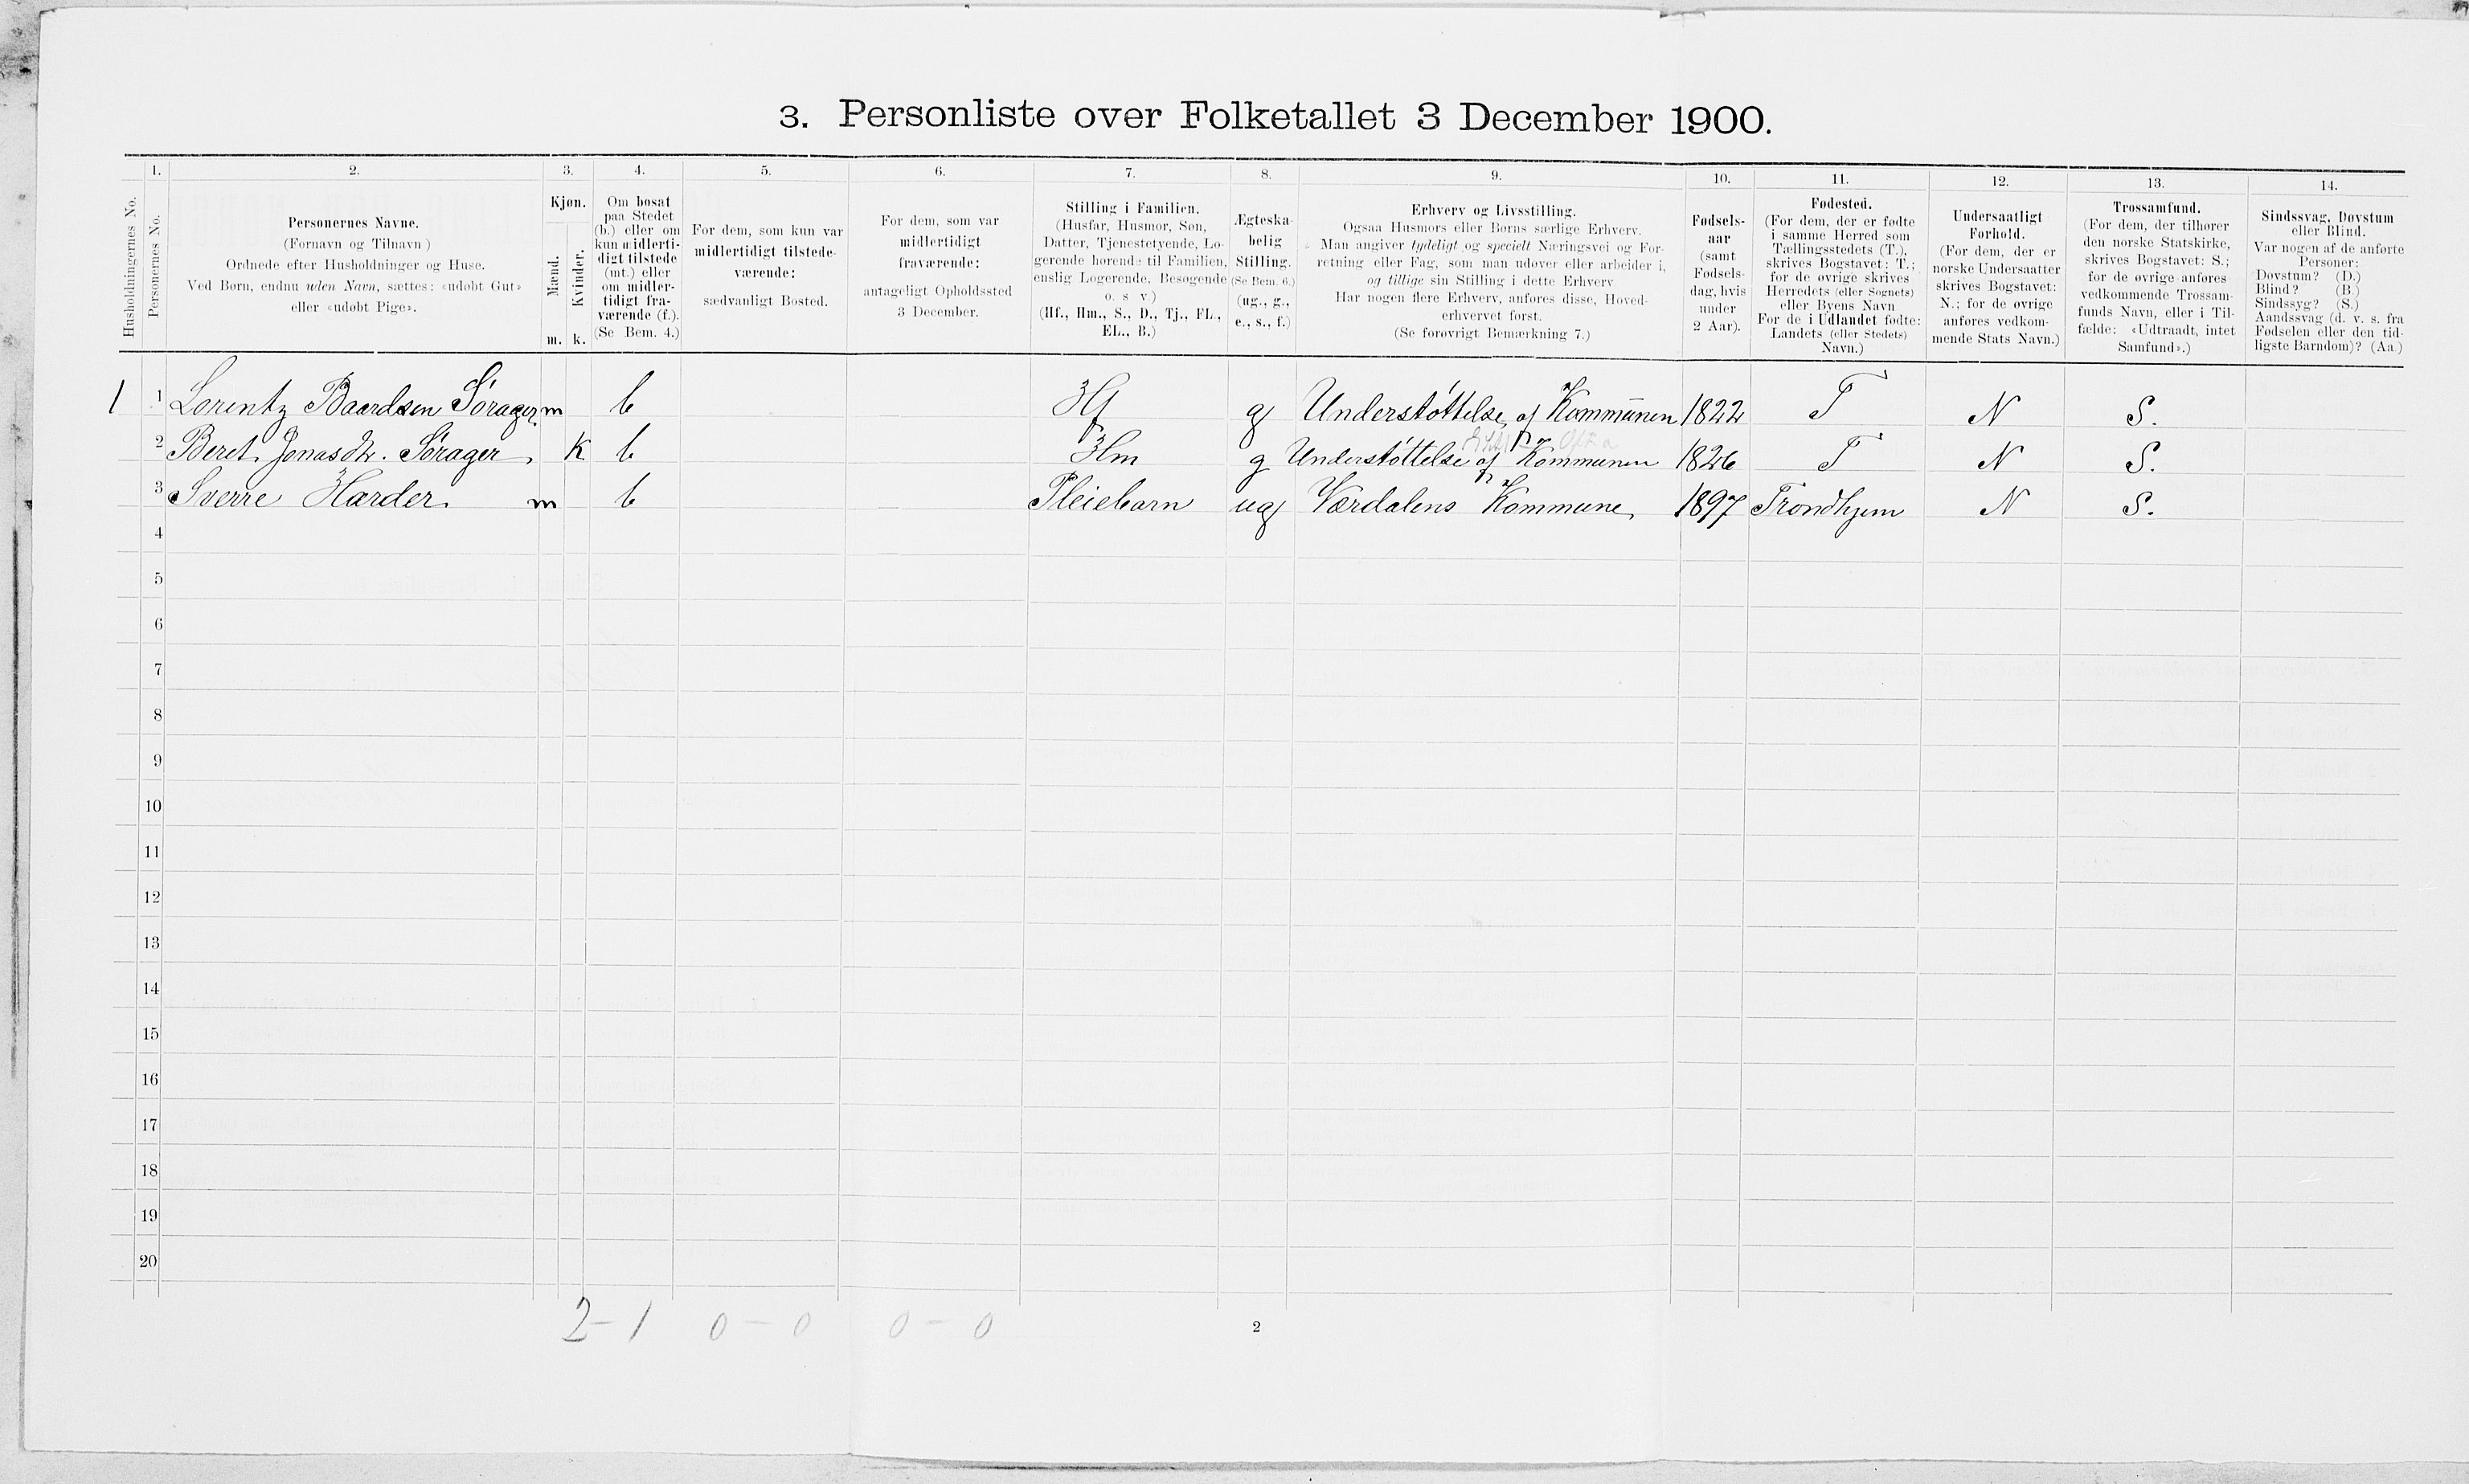 3. Personliste over Folketallet 3 December 1900.
Husholdningernes No.
1.
Personernes No.
2.
Personernes Navne.
(Fornavn og Tilnavn)
Ordnede efter Husholdninger og Huse.
Ved Børn, endnu uden Navn, sættes: «udøbt Gut»
eller «udøbt Pige».
3.
Kjøn.
Mænd.
Kvinder.
m. k.
4.
Om bosat
paa Stedet
(b.) eller om
kun midlerti-
digt tilstede
(mt.) eller
om midler-
tidigt fra-
værende (f.).
(Se Bem. 4.)
5.
For dem, som kun var
midlertidigt tilstede-
værende:
sædvanligt Bosted.
6.
For dem, som var
midlertidigt
fraværende:
antageligt Opholdssted
3 December.
7.
Stilling i Familien.
(Husfar, Husmor, Søn,
Datter, Tjenestetyende, Lo-
gerende hørende til Familien,
enslig Logerende, Besøgende
o. s v.)
(Hf., Hm., S., D., Tj., FL.,
EL., B.)
8.
Ægteska-
belig
Stilling.
(Se Bem. 6.)
(ug., g.,
e., s., f.)
9.
Erhverv og Livsstilling.
Ogsaa Husmors eller Børns særlige Erhverv.
Man angiver tydeligt og specielt Næringsvei og For-
retning eller Fag, som man udøver eller arbeider i,
og tillige sin Stilling i dette Erhverv
Har nogen flere Erhverv, anføres disse, Hoved-
erhvervet først.
(Se forøvrigt Bemærkning 7.)
10.
Fødsels-
aar
(samt
Fødsels-
dag, hvis
under
2 Aar).
11.
Fødested.
(For dem, der er fødte
i samme Herred som
Tællingsstedets (T.),
skrives Bogstavet: T.;
for de øvrige skrives
Herredets (eller Sognets)
eller Byens Navn
For de i Udlandet fødte:
Landets (eller Stedets)
Navn.)
12.
Undersaatligt
Forhold.
(For dem, der er
norske Undersaatter
skrives Bogstavet:
N.; for de øvrige
anføres vedkom-
mende Stats Navn.)
13.
Trossamfund.
(For dem, der tilhører
den norske Statskirke,
skrives Bogstavet: S.;
for de øvrige anføres
vedkommende Trossam-
funds Navn, eller i Til-
fælde: «Udtraadt, intet
Samfund».)
14.
Sindssvag, Døvstum
eller Blind.
Var nogen af de anførte
Personer:
Døvstum? (D.)
Blind? (B.)
Sindssyg? (S.)
Aandssvag (d. v. s. fra
Fødselen eller den tid-
ligste Barndom)? (Aa.)
1 1 Lorentz Baardsen Sørager m b Hf g Understøttelse af Kommunen 1822 T N S.
2 Beret Jonasdtr. Sørager k b Hm g Understøttelse af Kommunen 1826 T N S.
3 Sverre Harder m b Pleiebarn ug Værdalens Kommune 1897 Trondhjem N S.
4
5
6
7
8
9
10
11
12
13
14
15
16
17
18
19
20
2-1 0-0 0-0
2